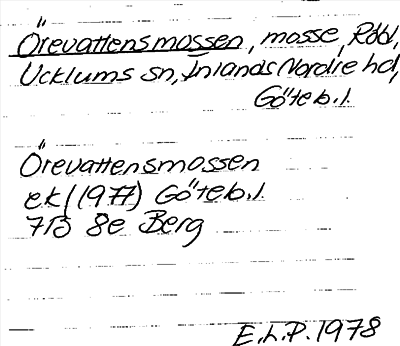 Örevattensmossen, mosse, Röd,
Ucklums sn, Inlands Nordre hd,
Göteb.l.
Örevattensmossen
ek/(1977) Göteb.l.
7B 8e Berg
E.L.P. 1978